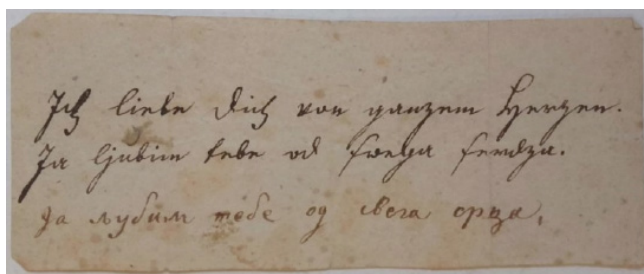 Ich liebe Dich von ganzem Herzen.
Ja ljubim tebe od svega serdza.
Ја љубим тебе од свега срца,